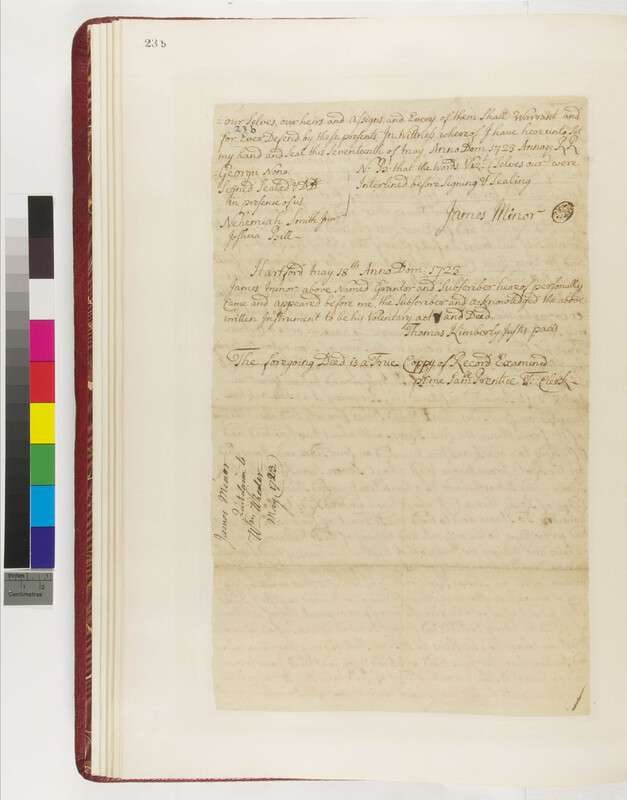 23 b
= our Selves, our heirs and assigns and Every of them Shall Warrant and
23 b
for Ever Defend by these presents In Wittness whereof I have hereunto Set
my hand and Seal this Seventeenth of may Anno Dom 1723 Annoq; RR
Georgii Nono.
Signed Sealed & DD
in presence of us
Nehemiah Smith Junr
Joshua Bill
No Ba: that the words Vizt (Selves our) were
Interlined before Signing & Sealing
James Minor
Hartford may 18th Anno Dom: 1723
James minor above Named Grantor and Subscriber hereof personally
Came and appeared before me the Subscriber and acknowledged the above
written Instrument to be his Voluntary act and Deed.
Thomas Kimberly Justs pacis
The foregoing Died is a True Coppy of Record Examined
pr me Sam Prentice T: Clerk
James Minor
Quitclaim to
Wm Wheeler
May 1723
Inches 1 2
Centimetres